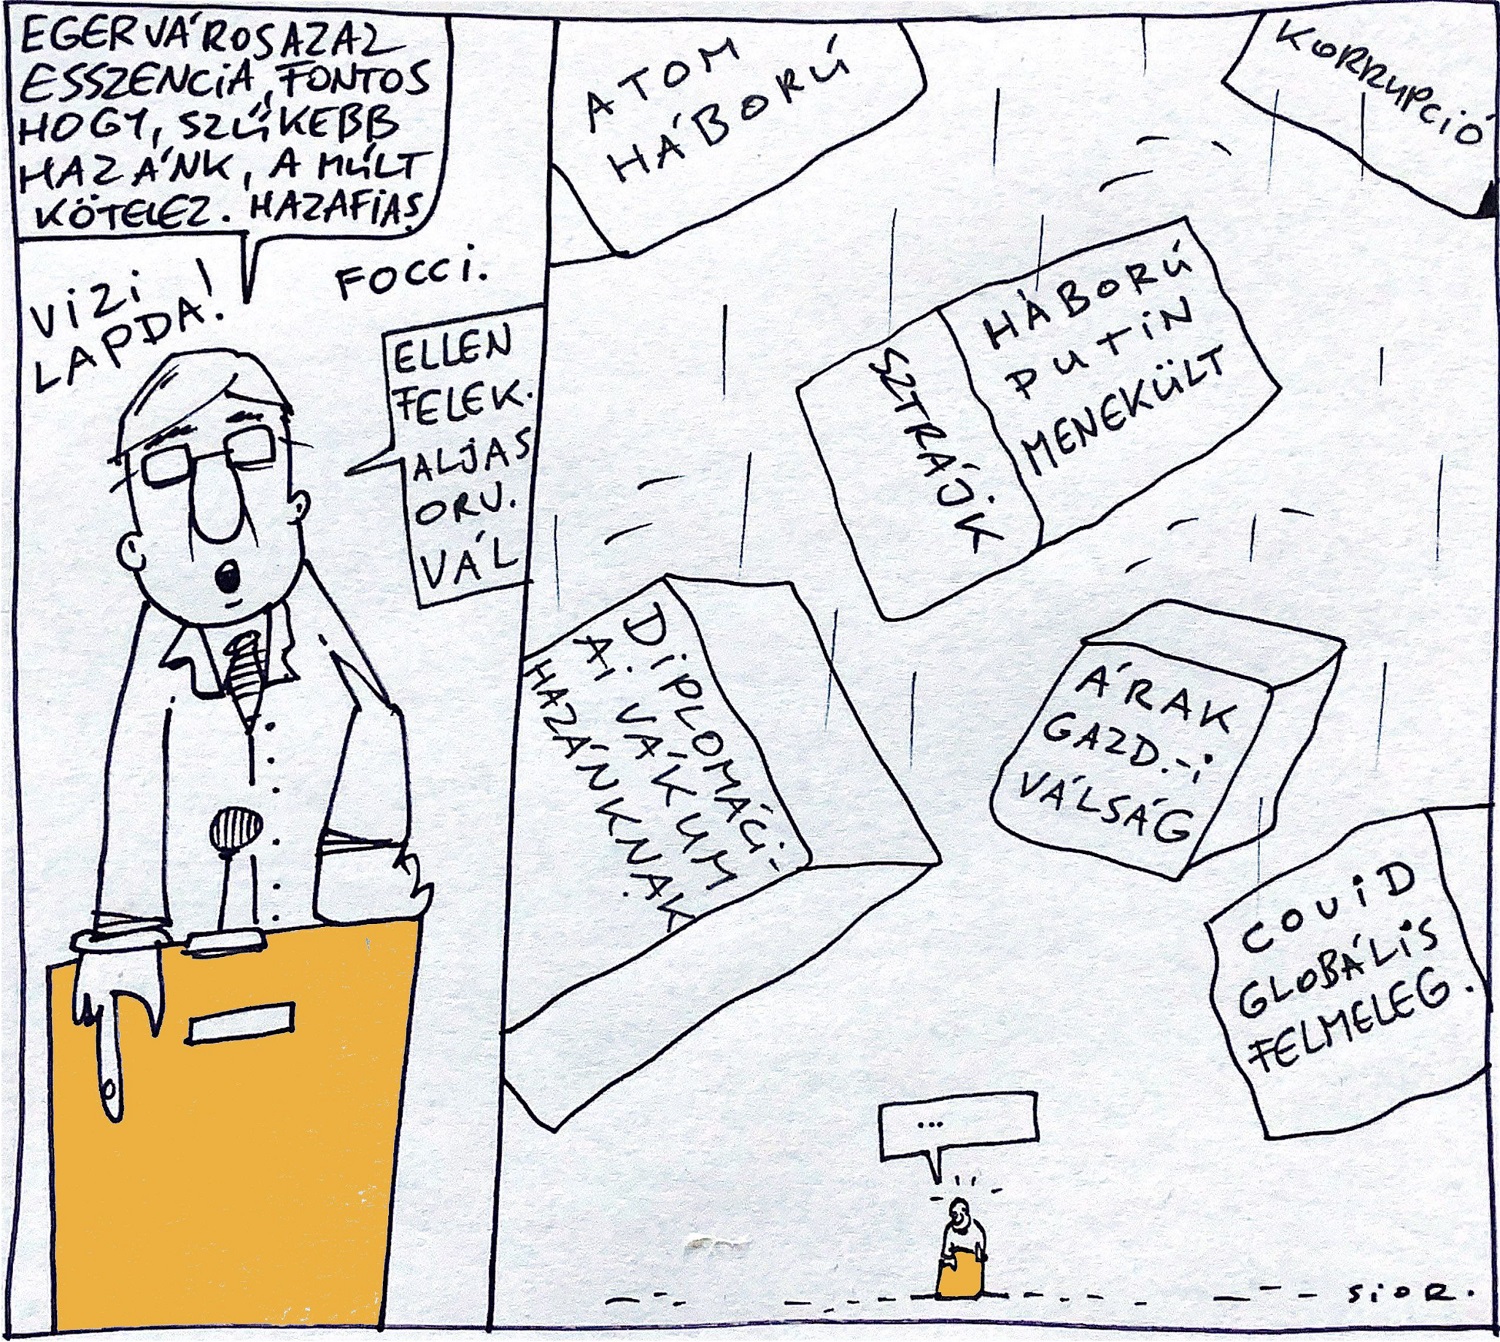 EGERVÁROSAZAZ
ESSZENCIA, FONTOS
HOGY, SZŰKEBB
HAZÁNK, A MÚLT
KÖTELEZ. HAZAFIAS.
VIZI
LAPDA!
FOCCI.
ELLEN
FELEK.
ALJAS
ORV.
VÁL
ATOM
HÁBORÚ
KORRUPCIÓ
SZTRÁJK
HÁBORÚ
PUTIN
MENEKÜLT
DIPLOMÁCI-
AI VÁKUM
HAZÁNKNAK
ÁRAK
GAZD.-i
VÁLSÁG
COVID
GLOBÁLIS
FELMELEG.
...
SiOR.